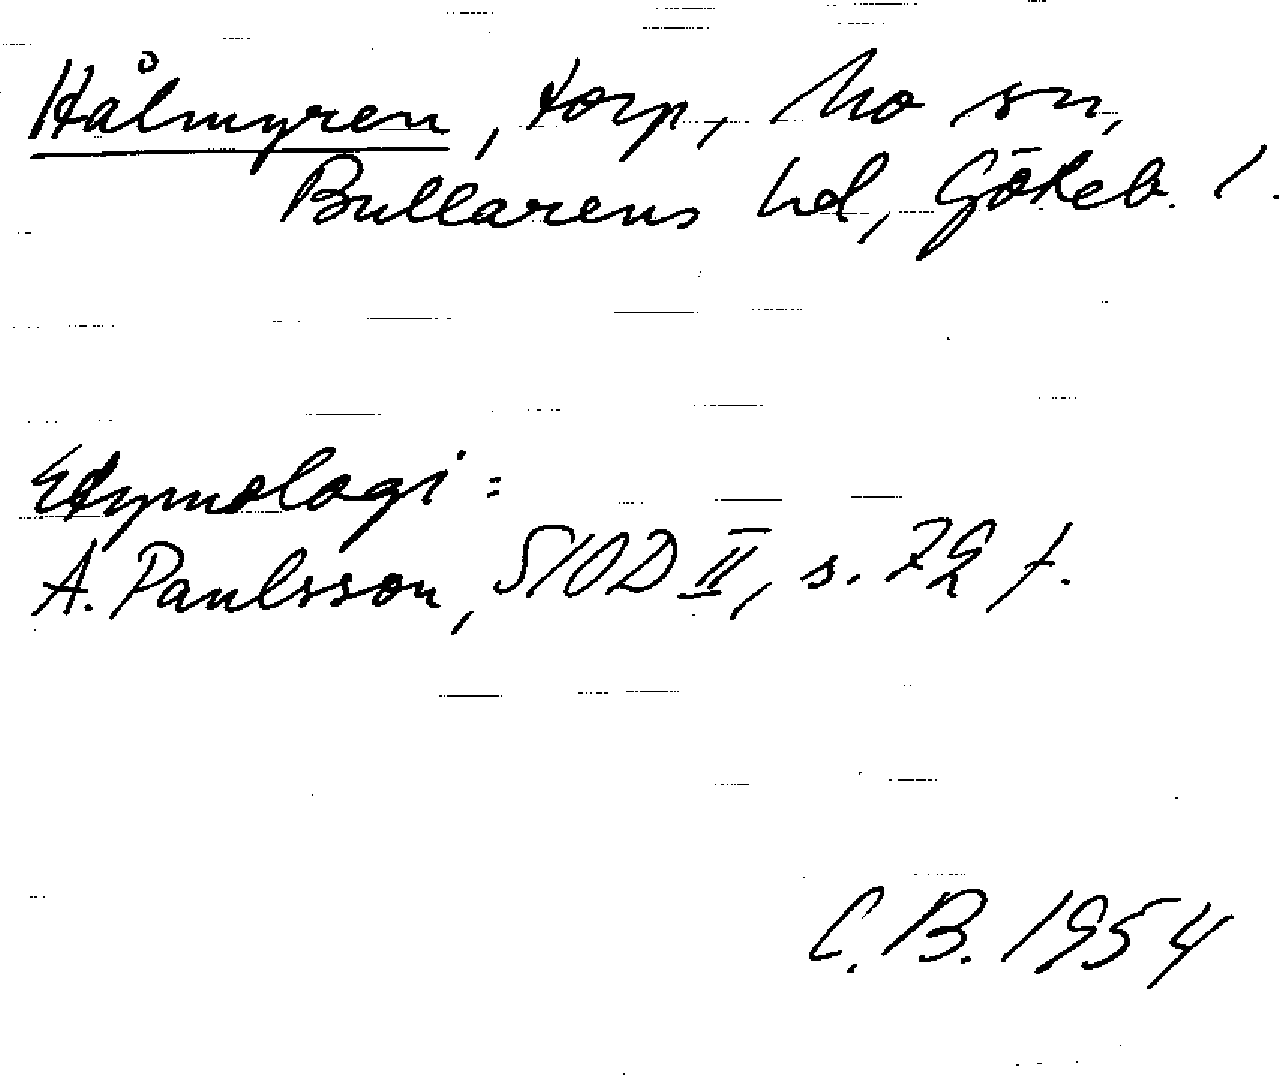 Hålmyren, torp, Mo sn,
Bullarens hd, Göteb. l.
Etymologi:
A. Paulsson, SIOD II, s. 79 f.
C. B. 1954